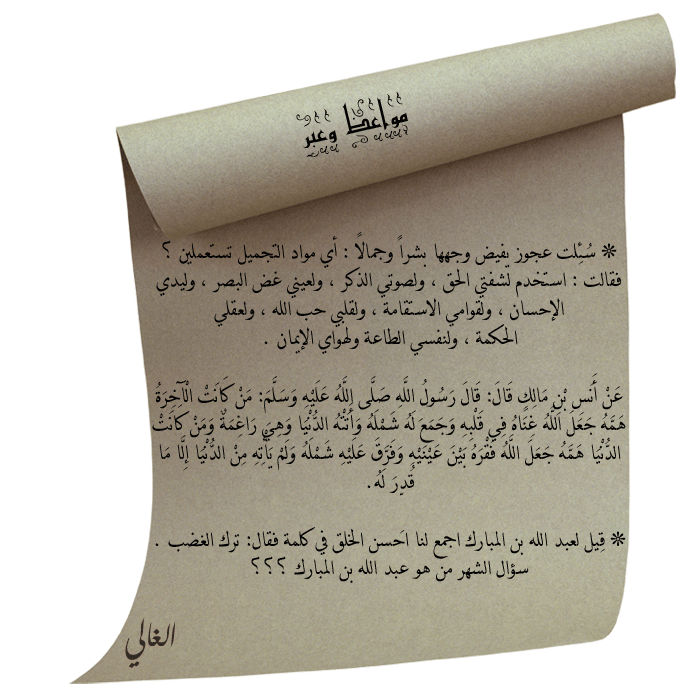 مواعظ وعبر
❋ سُئِلت عجوز يفيض وجهها بشراً وجمالًا : أي مواد التجميل تستعملين ؟
فقالت : استخدم لشفتي الحق ، ولصوتي الذكر ، ولعيني غض البصر ، وليدي
الإحسان ، ولقوامي الاستقامة ، ولقلبي حب الله ، ولعقلي
الحكمة ، ولنفسي الطاعة ولهواي الإيمان .
عَنْ أَنَسِ بْنِ مَالِكٍ قَالَ: قَالَ رَسُولُ اللَّهِ صَلَّى اللَّهُ عَلَيْهِ وَسَلَّمَ: مَنْ كَانَتْ الْآخِرَةُ
هَمَّهُ جَعَلَ اللَّهُ غِنَاهُ فِي قَلْبِهِ وَجَمَعَ لَهُ شَمْلَهُ وَأَتَتْهُ الدُّنْيَا وَهِيَ رَاغِمَةٌ وَمَنْ كَانَتْ
الدُّنْيَا هَمَّهُ جَعَلَ اللَّهُ فَقْرَهُ بَيْنَ عَيْنَيْهِ وَفَرَّقَ عَلَيْهِ شَمْلَهُ وَلَمْ يَأْتِهِ مِنْ الدُّنْيَا إِلَّا مَا
قُدِرَ لَهُ .
❋ قِيل لعبد الله بن المبارك اجمع لنا احَسن الخلق في كلمة فقال: ترك الغضب .
سؤال الشهر من هو عبد الله بن المبارك ؟؟؟
الغالي